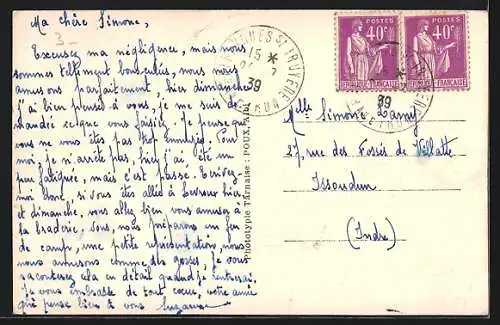 Ma chère Simone,
3-
Excusez ma négligence, mais nous
sommes tellement bousculés, nous nous
amusons parfaitement, hier dimanche
j'ai bien pensé à vous, je me suis de-
mandée ce que vous faisiez. Je pense que
vous ne vous êtes pas trop ennuyée. Pour
moi, je n'arrête pas, hier j'ai été un
peu fatiguée, mais c'est passé. Écrivez-
moi donc, si vous êtes allée à
et dimanche, vous allez bien vous amuser à
la braderie. Nous, nous préparons un feu
de camp, une petite représentation, nous
nous amusons comme des gosses, je vous
raconterai cela en détail quand je rentrerai.
Je vous embrasse de tout coeur, votre amie
qui pense bien à vous Suzanne
Phototypie Tarnaise : POUX, Albi
15 *
39
POSTES
40c
RÉPUBLIQUE FRANÇAISE
POSTES
40c
RÉPUBLIQUE FRANÇAISE
39
Mlle Simone Lamy
27, rue des Fossés de Villatte
Issoudun
(Indre)